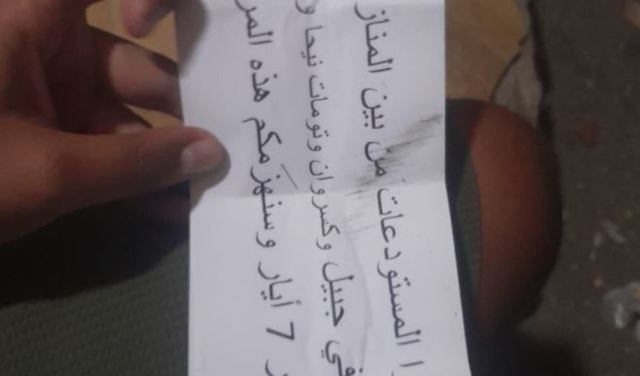 ا المستودعات من بين المناز
في جبيل وكسروان وتومات نيحا و
ر 7 أيار وسنهزمكم هذه المر